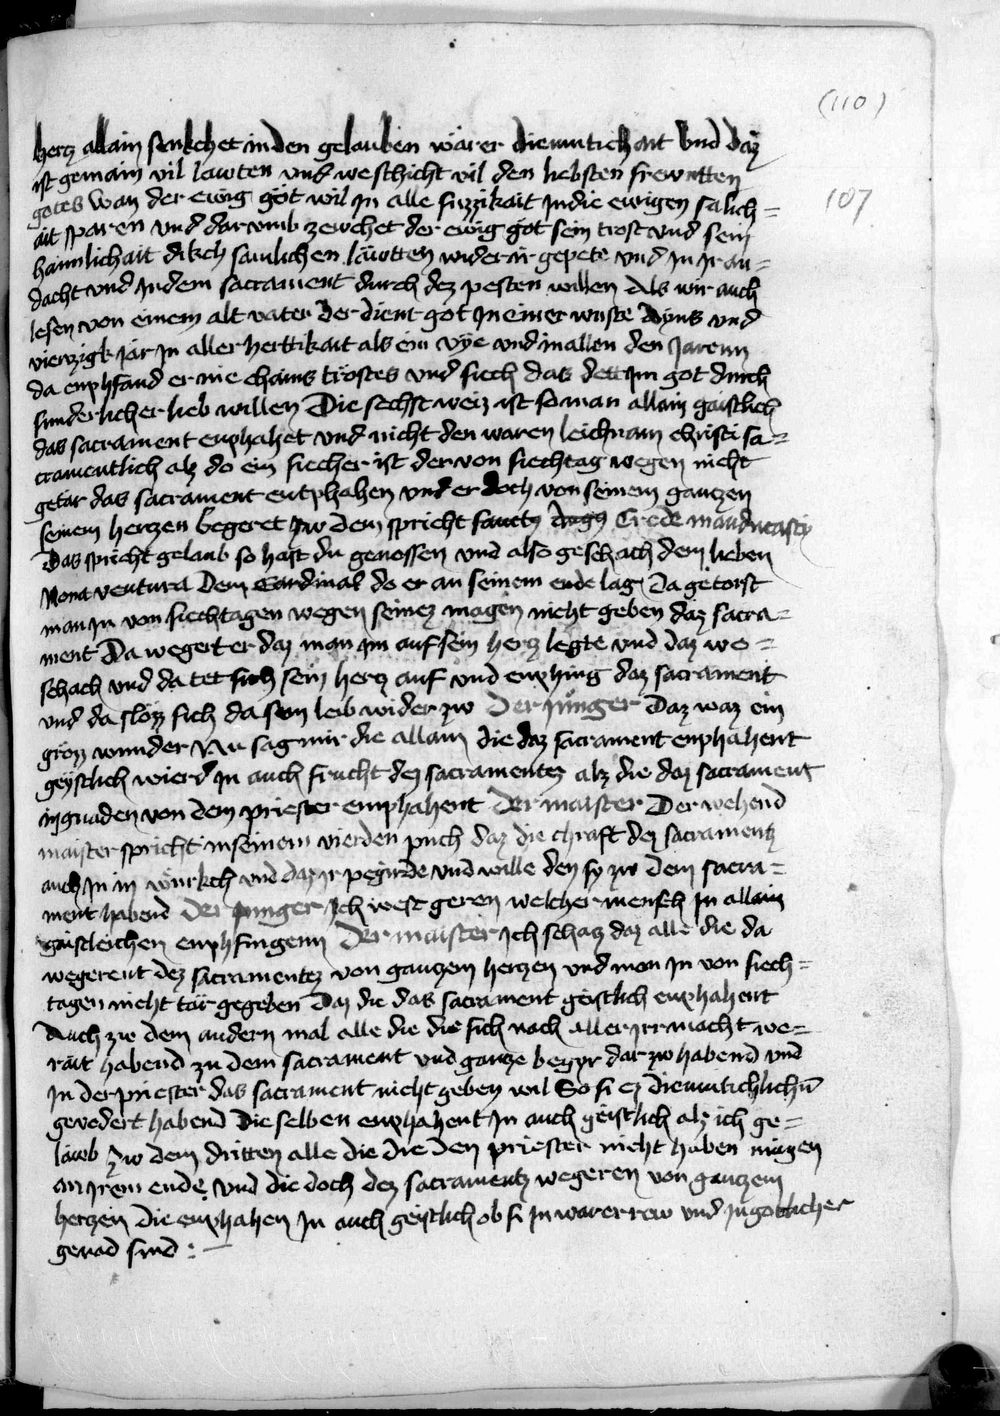 (110)
hertz allain senkchet in den gelauben warer diemutichait Vnd daz
ist gemain vil lawten vnd weschicht vil den liebsten frewntten
107
gotes Wan der ewig got wil In alle suzzikait In die ewigen salich=
ait sparen vnd dar vmb zewchet der ewig got sein trost vnd sein
haimlichait dikch samlichen läwtten wider ir gepete vnd In Ir an=
dacht vnd In dem sacrament durch dez pesten willen Als wir auch
lesen von einem alt vater Der dient got In einer wuste Ayns vnd
vierzigk Jar In aller herttikait als ein vye vnd in allen den Jarenn
da enphfand er nie chains trostes vnd sich das dett Im got durch
sunderlicher lieb willen Die sechst weiz ist so man allain gaistlich
das sacrament enphahet vnd nicht den waren leichnam christi sa=
cramentlich alz do ein siecher ist der von siechtag wegen nicht
getar das sacrament entphahen vnd er doch von seinem gantzen
seinem hertzen begeret zw dem spricht sanctus Augus Crede manducasti
Das spricht gelaub so hast du genossen vnd also geschach dem lieben
Wona ventura Dem Cardinal do er an seinem ende lag Da getorst
man In von siechtagen wegen seinez magen nicht geben daz sacra=
ment Da wegert er daz man im auf sein hertz legte vnd daz we=
schach vnd da tet sich sein hertz auf vnd enphing daz sacrament
vnd da slozz sich da sein leib wider zw Der junger Daz waz ein
grozz wunder Nu sag mir die allain die daz sacrament enphahent
geystlich wierd In auch frucht dez sacramentez alz die daz sacrament
in gnaden von dem priester emphahent Der maister Der wehend
maister spricht in seinem vierden puch daz die chraft dez sacramentz
auch In in würkch vnd daz ir pegirde vnd wille den sy zw dem sacra=
ment habend Der junger Ich west geren welcher mensch In allain
gaistleichen enphfingenn Der maister Ich schatz daz alle die da
wegerent dez sacramentez von gantzem hertzen vnd man In von siech=
tagen nicht tar gegeben Daz die das sacrament geistlich enphahent
Auch zw dem andern mal alle die die sich nach aller irr macht we=
rait habend zu dem sacrament vnd gantze begyr dar zw habend vnd
In der priester das sacrament nicht geben wil So si ez diemutichlichn
gevodert habend Die selben enphahent In auch geistlich alz ich ge=
lawb Zw dem dritten alle die die den priester nicht haben mügen
an Irem ende vnd die doch dez sacramentz wegeren von gantzem
hertzen Die enphahen In auch geistlich ob si In warer rew vnd In gottlicher
genad sind :—